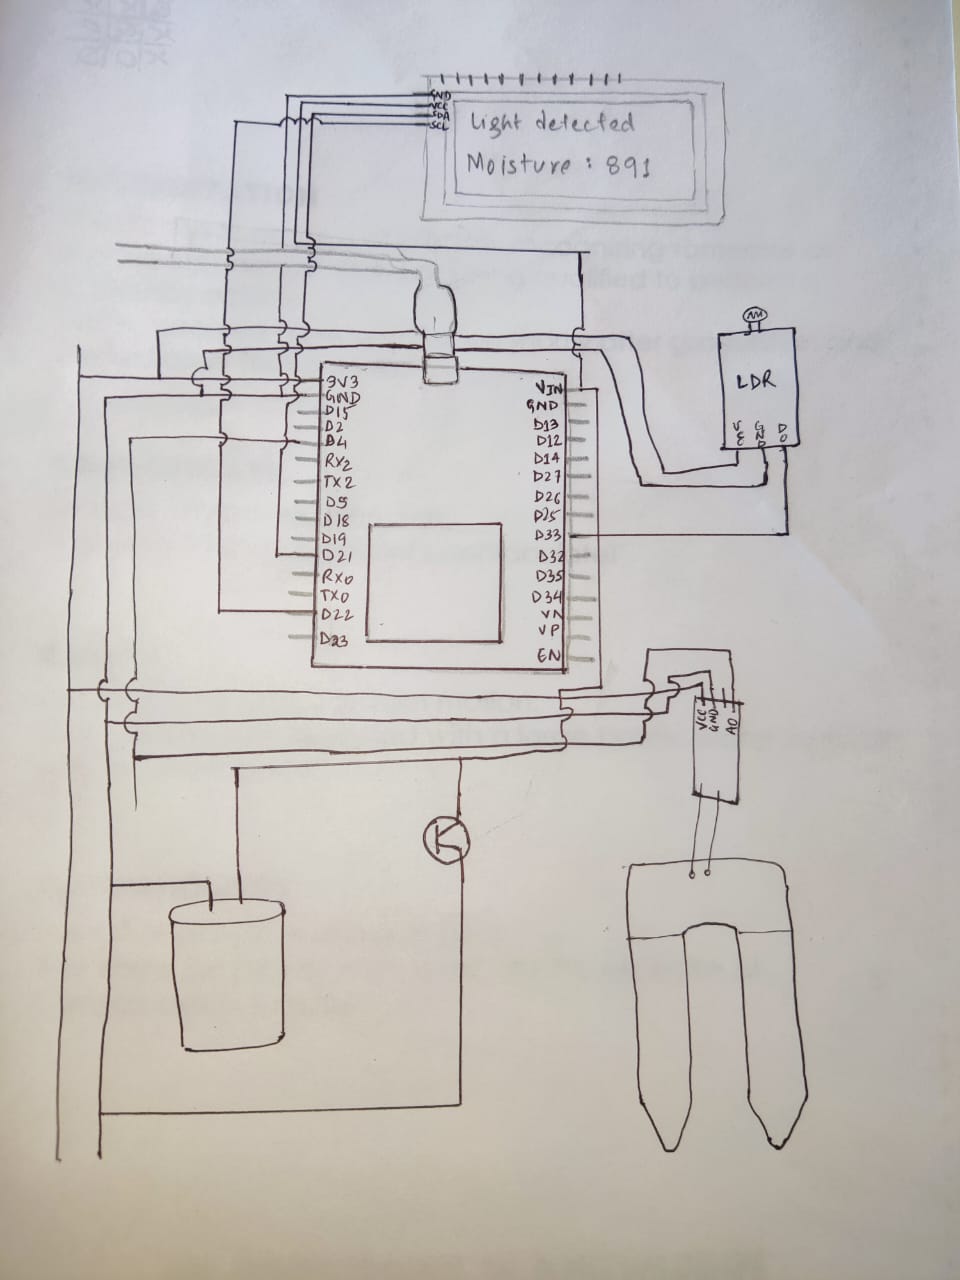 GND
VCC
SDA
SCL
Light detected
Moisture : 891
3V3
GND
D15
D2
D4
RX2
TX2
D5
D18
D19
D21
RX0
TX0
D22
D23
VIN
GND
D13
D12
D14
D27
D26
D25
D33
D32
D35
D34
VN
VP
EN
LDR
VCC
GND
DO
VCC
GND
AO